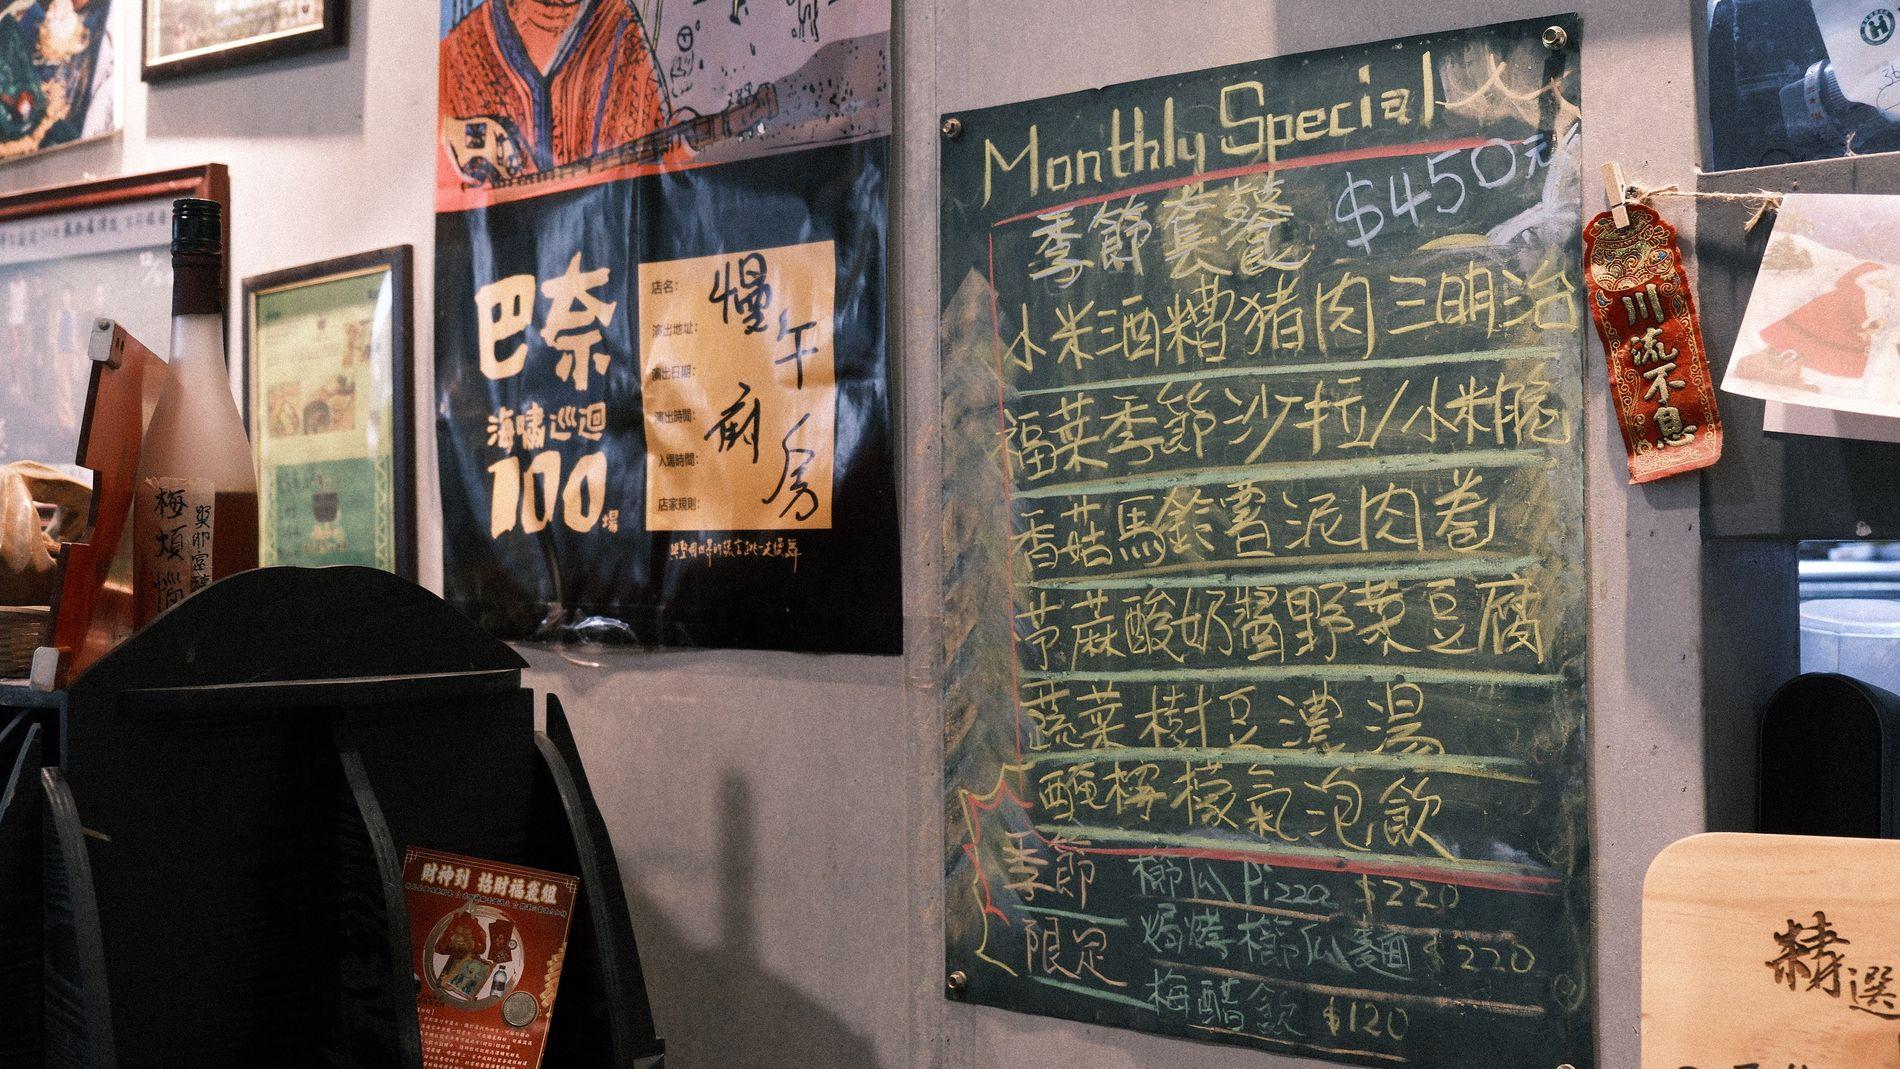 Monthly Special
季節套餐 $450元
小米酒糟豬肉三明治
福菜季節沙拉/小米脆
香菇馬鈴薯泥肉卷
荨蔴酸奶醬野菜豆腐
蔬菜樹豆濃湯
醃檸檬氣泡飲
季節限定
櫛瓜 Pizza $220
焗烤櫛瓜麵 $220
梅醋飲 $120
巴奈
海嘯巡迴
100場
店名:
演出地址:
演出日期:
演出時間:
入場時間:
店家規則:
慢午廚房
川流不息
梅煩惱
財神到 袺財福袋組
精選